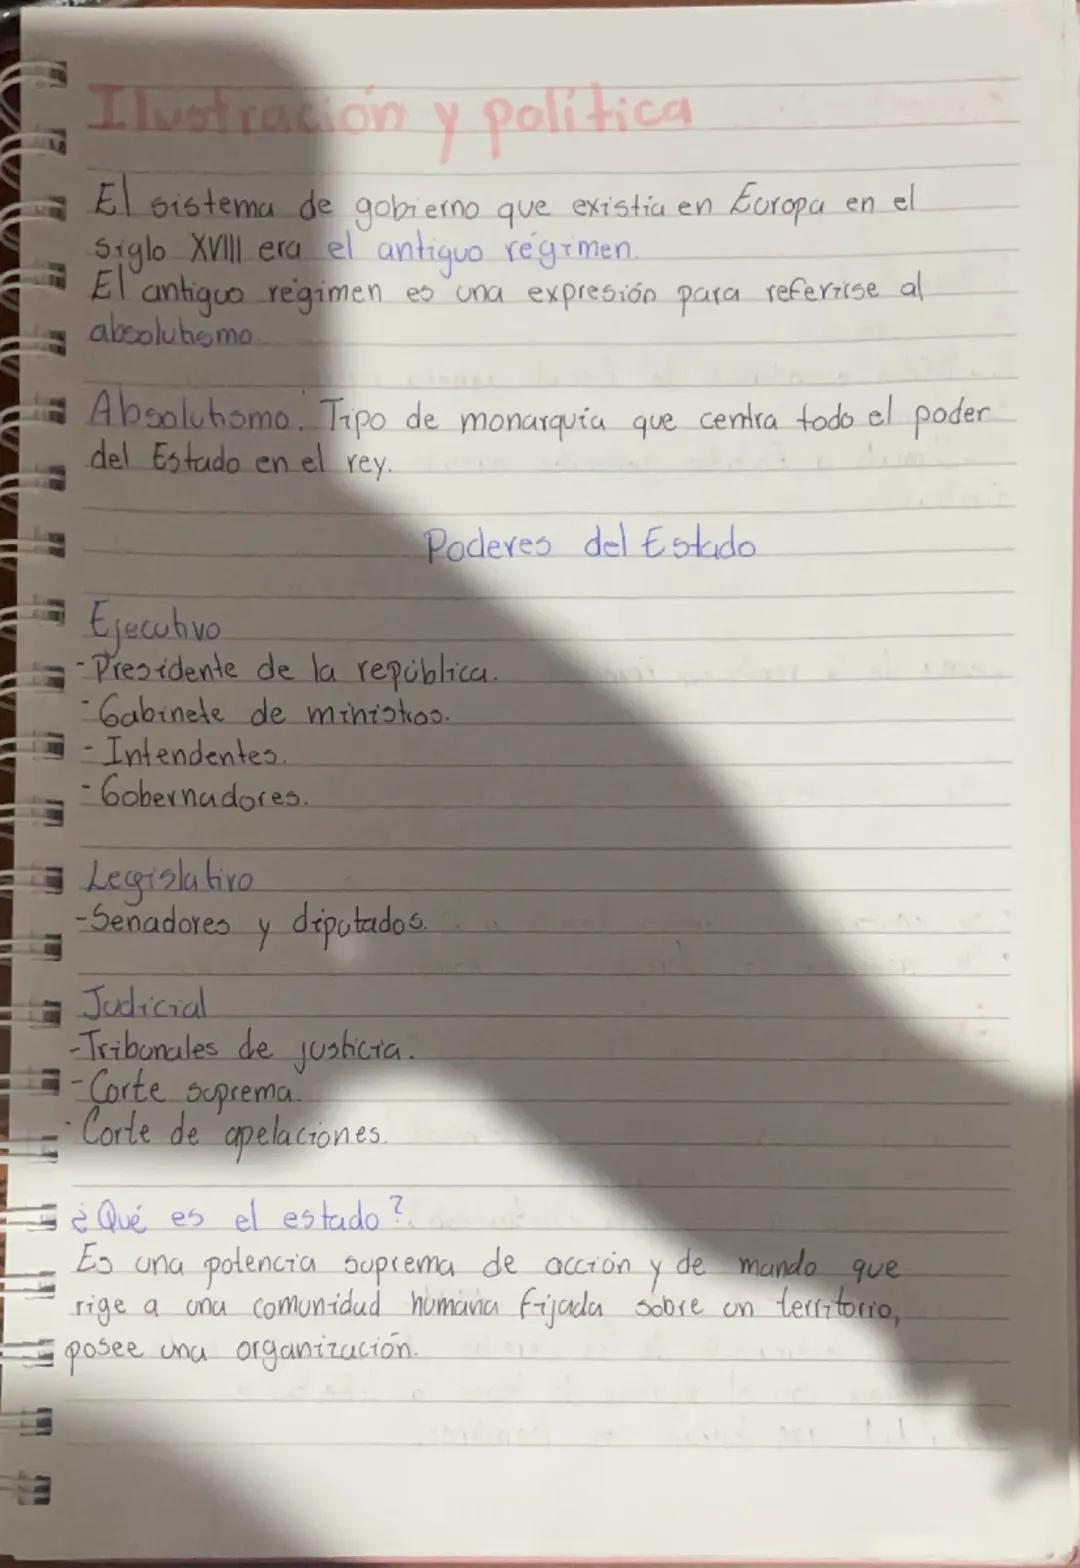 Ilustración y política
El sistema de gobierno que existía en Europa en el
siglo XVIII era el antiguo régimen.
El antiguo régimen es una expresión para referirse al
absolutismo.
Absolutismo: Tipo de monarquía que centra todo el poder
del Estado en el rey.
Poderes del Estado
Ejecutivo
-Presidente de la república.
-Gabinete de ministros.
- Intendentes.
-Gobernadores.
Legislativo
-Senadores y diputados.
Judicial
-Tribunales de justicia.
-Corte suprema.
-Corte de apelaciones.
¿Qué es el estado?
Es una potencia suprema de acción y de mando que
rige a una comunidad humana fijada sobre un territorio,
posee una organización.